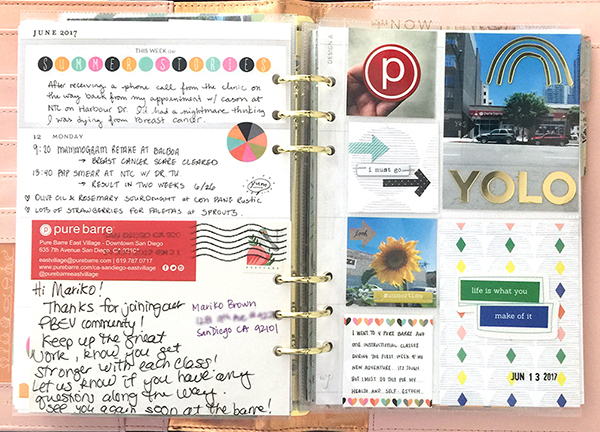 JUNE 2017
THIS WEEK
SUMMER STORIES
After receiving a phone call from the clinic on
the way back from my appointment w/ Cason at
NTC on Harbour Dr. I'd had a nightmare thinking
I was dying from Breast Cancer.
12 MONDAY
9:20 MAMMOGRAM RETAKE AT BALBOA
→ BREAST CANCER SCARE CLEARED
13:40 PAP SMEAR AT NTC W/ DR. TU
→ RESULT IN TWO WEEKS 6/26
June
♡ OLIVE OIL & ROSEMARY SOURDOUGHT at CON PANE Rustic
♡ LOTS OF STRAWBERRIES FOR PALETAS at SPROUTS.
pure barre
Pure Barre East Village - Downtown San Diego
635 7th Avenue San Diego, CA 92101
eastvillage@purebarre.com | 619.787.0717
www.purebarre.com/ca-sandiego-eastvillage
@purebarreeastvillage
SAN DIEGO CA
Hi Mariko!
Thanks for joining our
PBEV community!
Keep up the great
work, know you get
stronger with each class!
Let us know if you have any
questions along the way.
See you again soon at the barre!
Mariko Brown
San Diego CA 92101
DESIGN A
NOW
p
pure barre
YOLO
i must go
Look
#summertime
life is what you
make of it
I WENT TO PURE BARRE AND
DID INSTRUCTIONAL CLASSES
DURING THE FIRST WEEK OF MY
NEW ADVENTURE. IT'S TOUGH
BUT I MUST DO THIS FOR MY
HEALTH AND SELF ESTEEM.
JUN 13 2017